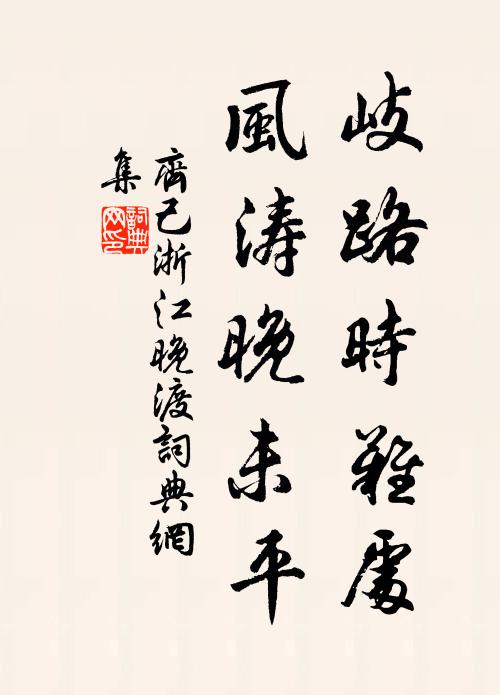 岐路時難處
風涛晚未平
齊己浙江晚渡詞典網
集
詞典网印